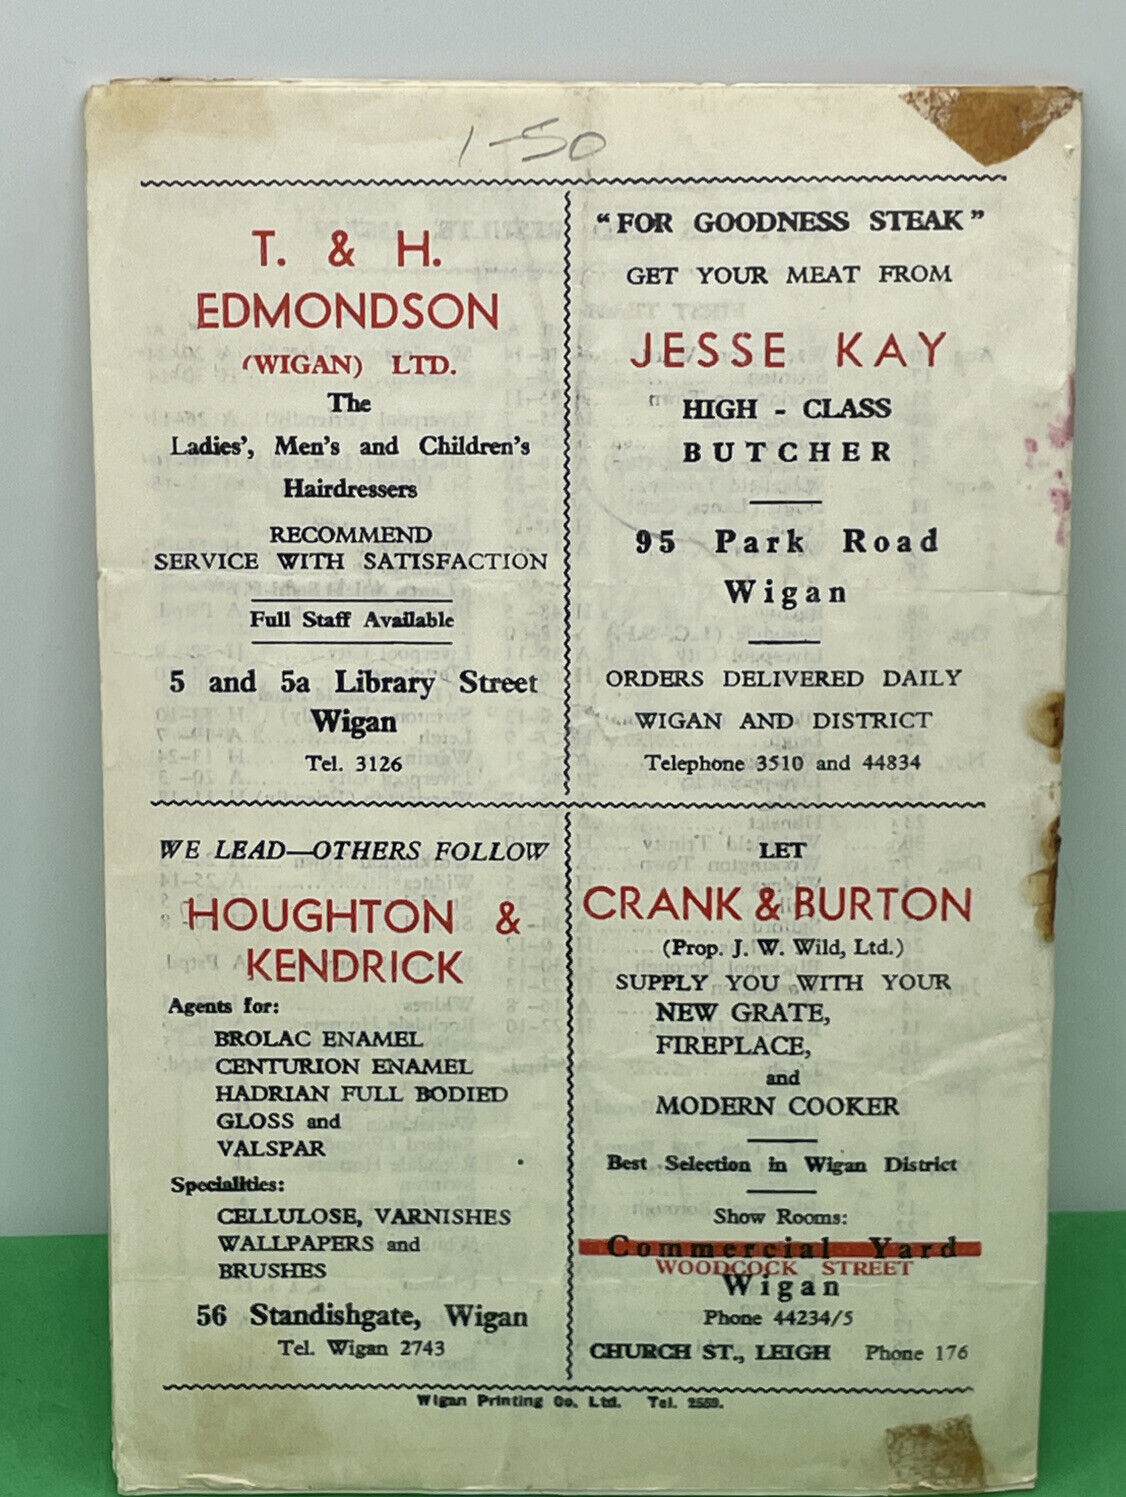 1-50
T. & H.
EDMONDSON
(WIGAN) LTD.
The
Ladies', Men's and Children's
Hairdressers
RECOMMEND
SERVICE WITH SATISFACTION
Full Staff Available
5 and 5a Library Street
Wigan
Tel. 3126
"FOR GOODNESS STEAK"
GET YOUR MEAT FROM
JESSE KAY
HIGH - CLASS
BUTCHER
95 Park Road
Wigan
ORDERS DELIVERED DAILY
WIGAN AND DISTRICT
Telephone 3510 and 44834
WE LEAD—OTHERS FOLLOW
HOUGHTON &
KENDRICK
Agents for:
BROLAC ENAMEL
CENTURION ENAMEL
HADRIAN FULL BODIED
GLOSS and
VALSPAR
Specialities:
CELLULOSE, VARNISHES
WALLPAPERS and
BRUSHES
56 Standishgate, Wigan
Tel. Wigan 2743
LET
CRANK & BURTON
(Prop. J. W. Wild, Ltd.)
SUPPLY YOU WITH YOUR
NEW GRATE,
FIREPLACE,
and
MODERN COOKER
Best Selection in Wigan District
Show Rooms:
Commercial Yard
WOODCOCK STREET
Wigan
Phone 44234/5
CHURCH ST., LEIGH Phone 176
Wigan Printing Co. Ltd. Tel. 2559.